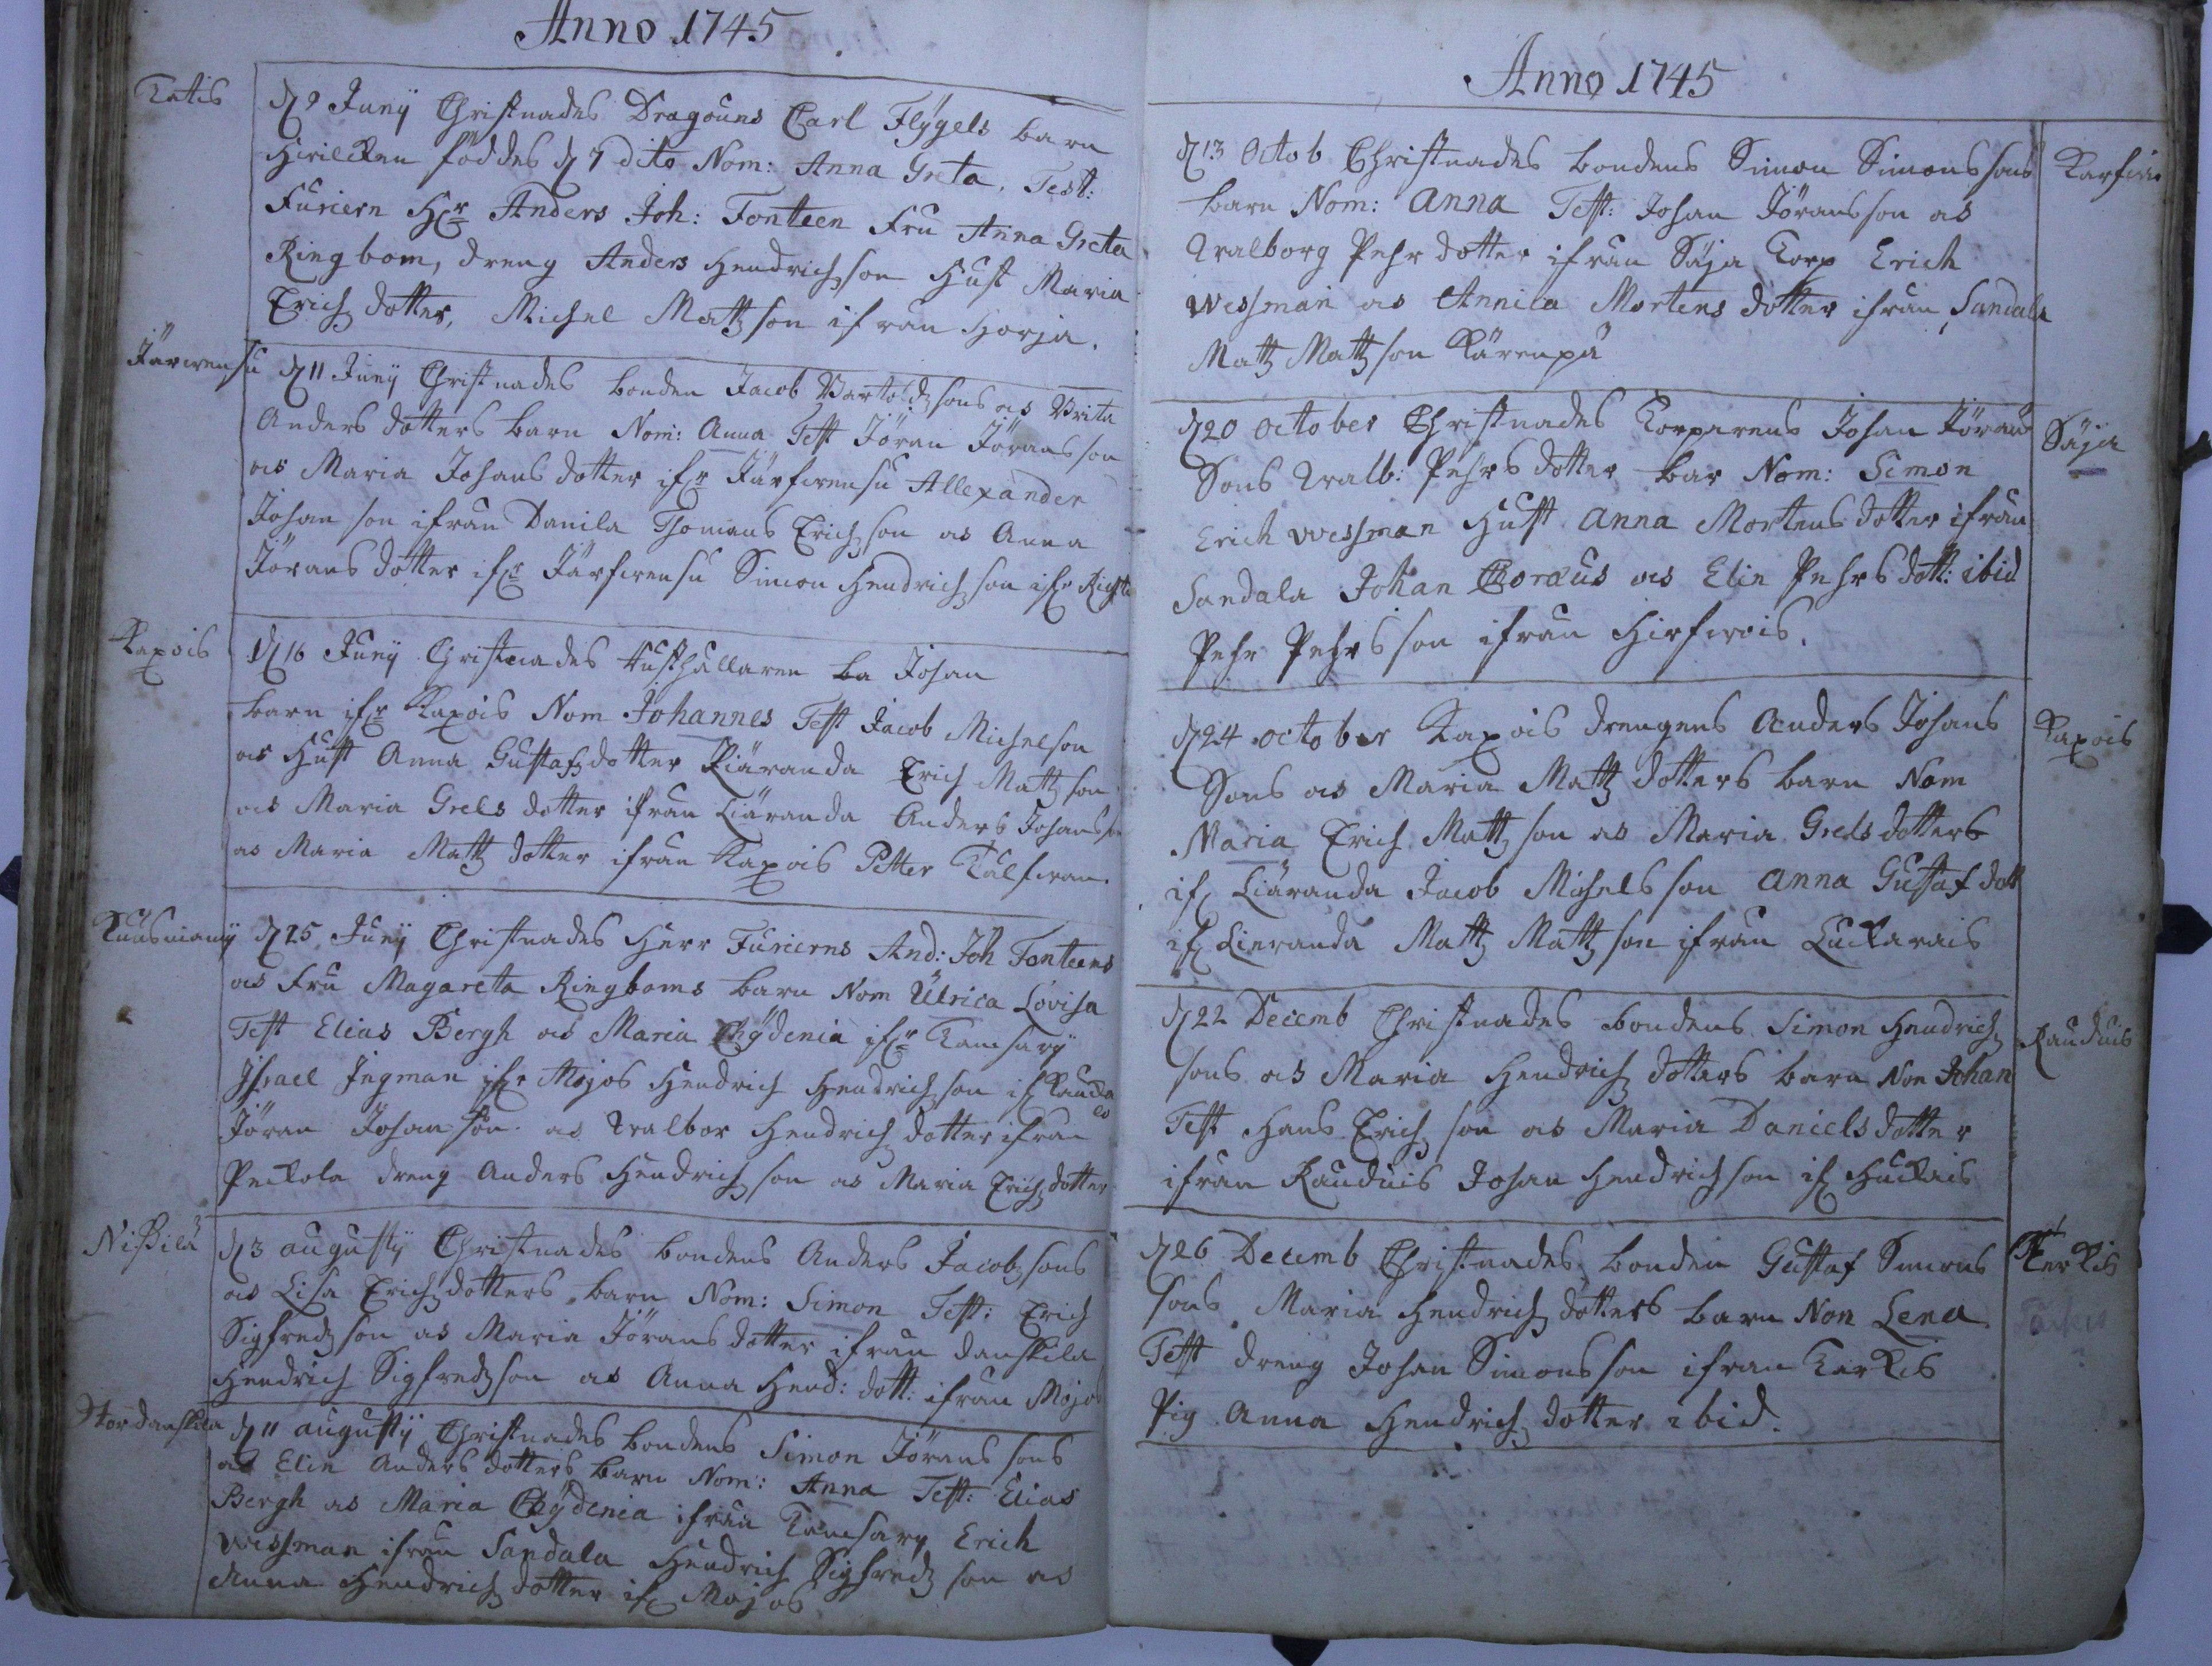 Anno 1745
Katis
d 9 Junÿ Christnades Dragouns Carl Flÿgels barn
hwilcken föddes d 7 dito Nom: Anna Greta. Test:
Furiern Hr Anders Joh: Fonteen Fru Anna Greta
Ringbom, dreng Anders Hendrichson Hust Maria
Erichdotter, Michel Mattson ifrån Horja.
Järwensu
d 11 Junÿ Christnades bonden Jacob Bartoldsons as Brita
Anders dotters barn Nom: Anna Test Jöran Jöransson
as Maria Johans dotter ifr Järfwensu Allexander
Johan son ifrån Danila Thomas Erichson as Anna
Jörans dotter ifr Järfwensu Simon Hendrichson ifr
Kaxois
d 16 Junÿ Christnades Rusthållaren ba Johan
barn ifr Kaxois Nom Johannes Test Jacob Michelson
as Hust Anna Gustafsdotter Liäranda Erich Mattson
as Maria Grels dotter ifrån Liäranda Anders Johansson
as Maria Matts dotter ifrån Kaxois Petter Kulfwan.
Kuusmany
d 25 Junÿ Christnades Herr Furierns And: Joh Fonteens
as Fru Magareta Ringboms barn Nom Ulrica Lovisa
Test Elias Bergh as Maria Chÿdenia ifr Tamsarÿ
Israel Ingman ifr Mojos Hendrich Hendrichson if
Jöran Johanson as Walbor Hendrichdotter ifrån
Peckola dreng Anders Hendrichson as Maria Erichdotter
Nissilä
d 3 augustÿ Christnades bondens Anders Jacobsons
as Lisa Erichdotters barn Nom: Simon Test: Erich
Sigfredson as Maria Jörans dotter ifrån danskila
Hendrich Sigfredson as Anna Hend: dott: ifrån Mojos
Stor danskila
d 11 augustÿ Christnades bondens Simon Jörans sons
as Elin Anders dotters barn Nom: Anna Test: Elias
Bergh as Maria Chÿdenia ifrån Tamsarÿ Erich
Wessman ifrån Sandala Hendrich Sigfredson as
Anna Hendrichdotter if Mojos
Anno 1745
d 13 Octob Christnades bondens Simon Simonssons
barn Nom: Anna Test: Johan Jöransson as
Walborg Pehr dotter ifrån Säja Torp Erich
Wessman as Annica Mortens dotter ifrån Sandala
Matts Mattson Kärenpä
d 20 October Christnades Torparens Johan Jörans
Sons Walb: Pehrs dotter bar Nom: Simon
Erich Wessman Hust Anna Mortens dotter ifrån
Sandala Johan Choræus as Elin Pehrs dott: ibid
Pehr Pehrsson ifrån Hirfwois.
Säja
d 24 october Kaxois drengens Anders Johans
Sons as Maria Matts dotters barn Nom
Maria Erich Mattson as Maria Grelsdotters
if Liäranda Jacob Michelsson Anna Gustaf dott
if Lieranda Matts Mattson ifrån Luckarais
Kaxois
d 22 Decemb Christnades bondens Simon Hendrich
sons as Maria Hendrich dotters barn Nom Johan
Test Hans Erich son as Maria Daniels dotter
ifrån Rauduis Johan Hendrichson if Huckais
Rauduis
d 26 Decemb Christnades bonden Gustaf Simons
sons Maria Hendrich dotters barn Nom Lena
Test dreng Johan Simonsson ifrån Kerkis
Pig Anna Hendrich dotter ibid.
Kerkis